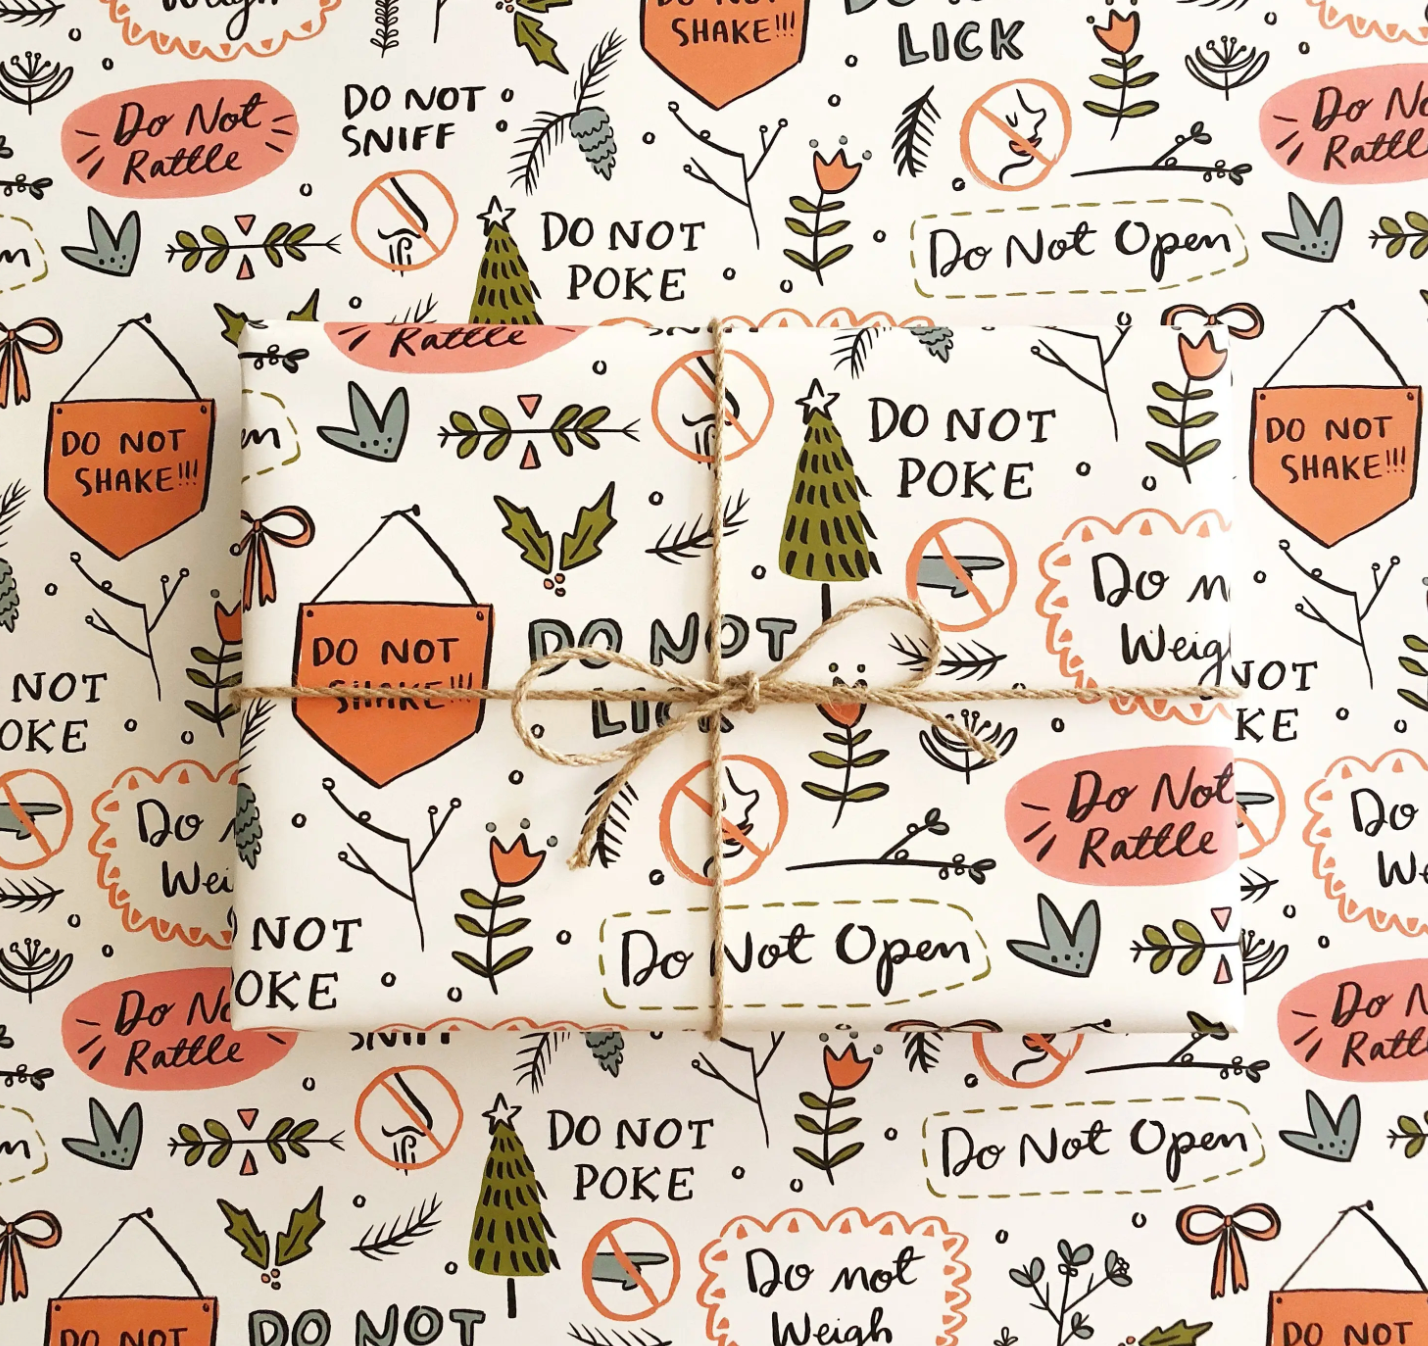 Weigh
DO NOT
SHAKE!!!
LICK
Do Not
Rattle
DO NOT
SNIFF
Do No
Rattle
DO NOT
POKE
Do Not Open
Rattle
DO NOT
SHAKE!!!
DO NOT
POKE
DO NOT
SHAKE!!!
DO NOT
SHAKE!!!
DO NOT
LICK
Do n
Weig
NOT
OKE
NOT
KE
Do
Wei
Do Not
Rattle
Do
We
NOT
OKE
Do Not Open
Do No
Rattle
SNIFF
Do N
Ratt
DO NOT
POKE
Do Not Open
Do not
Weigh
DO NOT
DO NOT
DO NOT